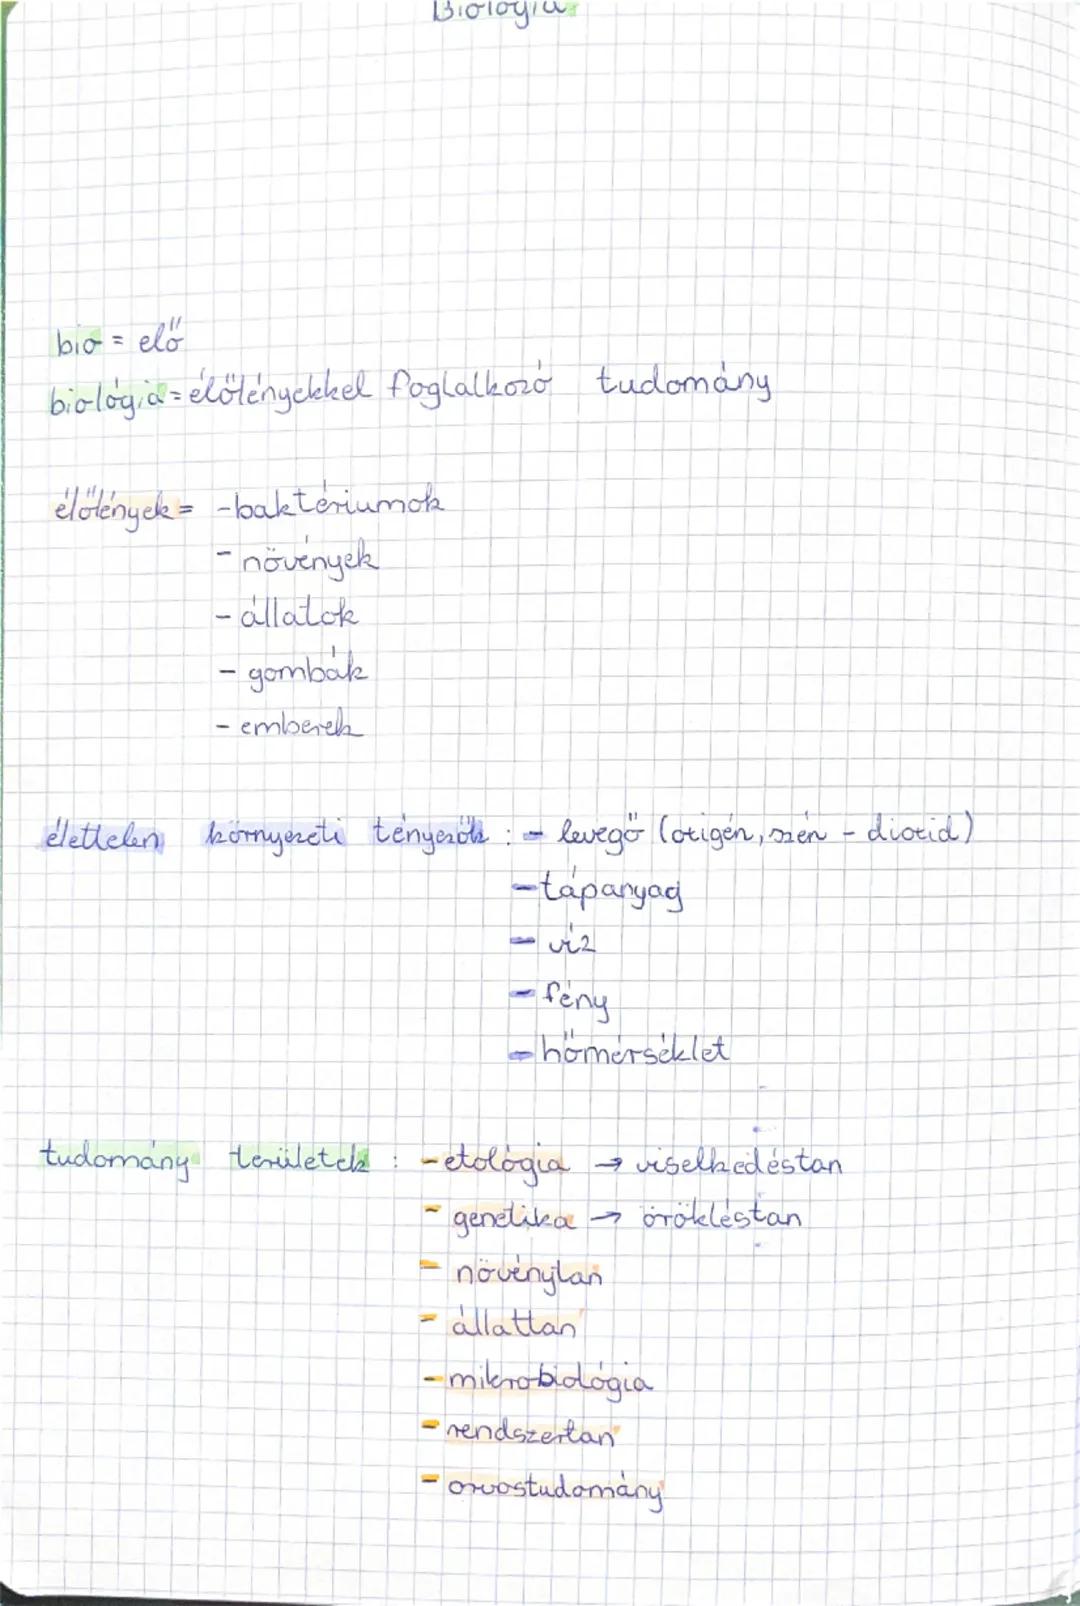 Biológia
bio = élő
biológia = élőlényekkel foglalkozó tudomány
élőlények = - baktériumok
- növények
- állatok
- gombák
- emberek
élettelen környezeti tényezők : - levegő (oxigén, szén - dioxid)
- tápanyag
- víz
- fény
- hőmérséklet
tudomány területek : - etológia → viselkedéstan
- genetika → örökléstan
- növénytan
- állattan
- mikrobiológia
- rendszertan
- orvostudomány